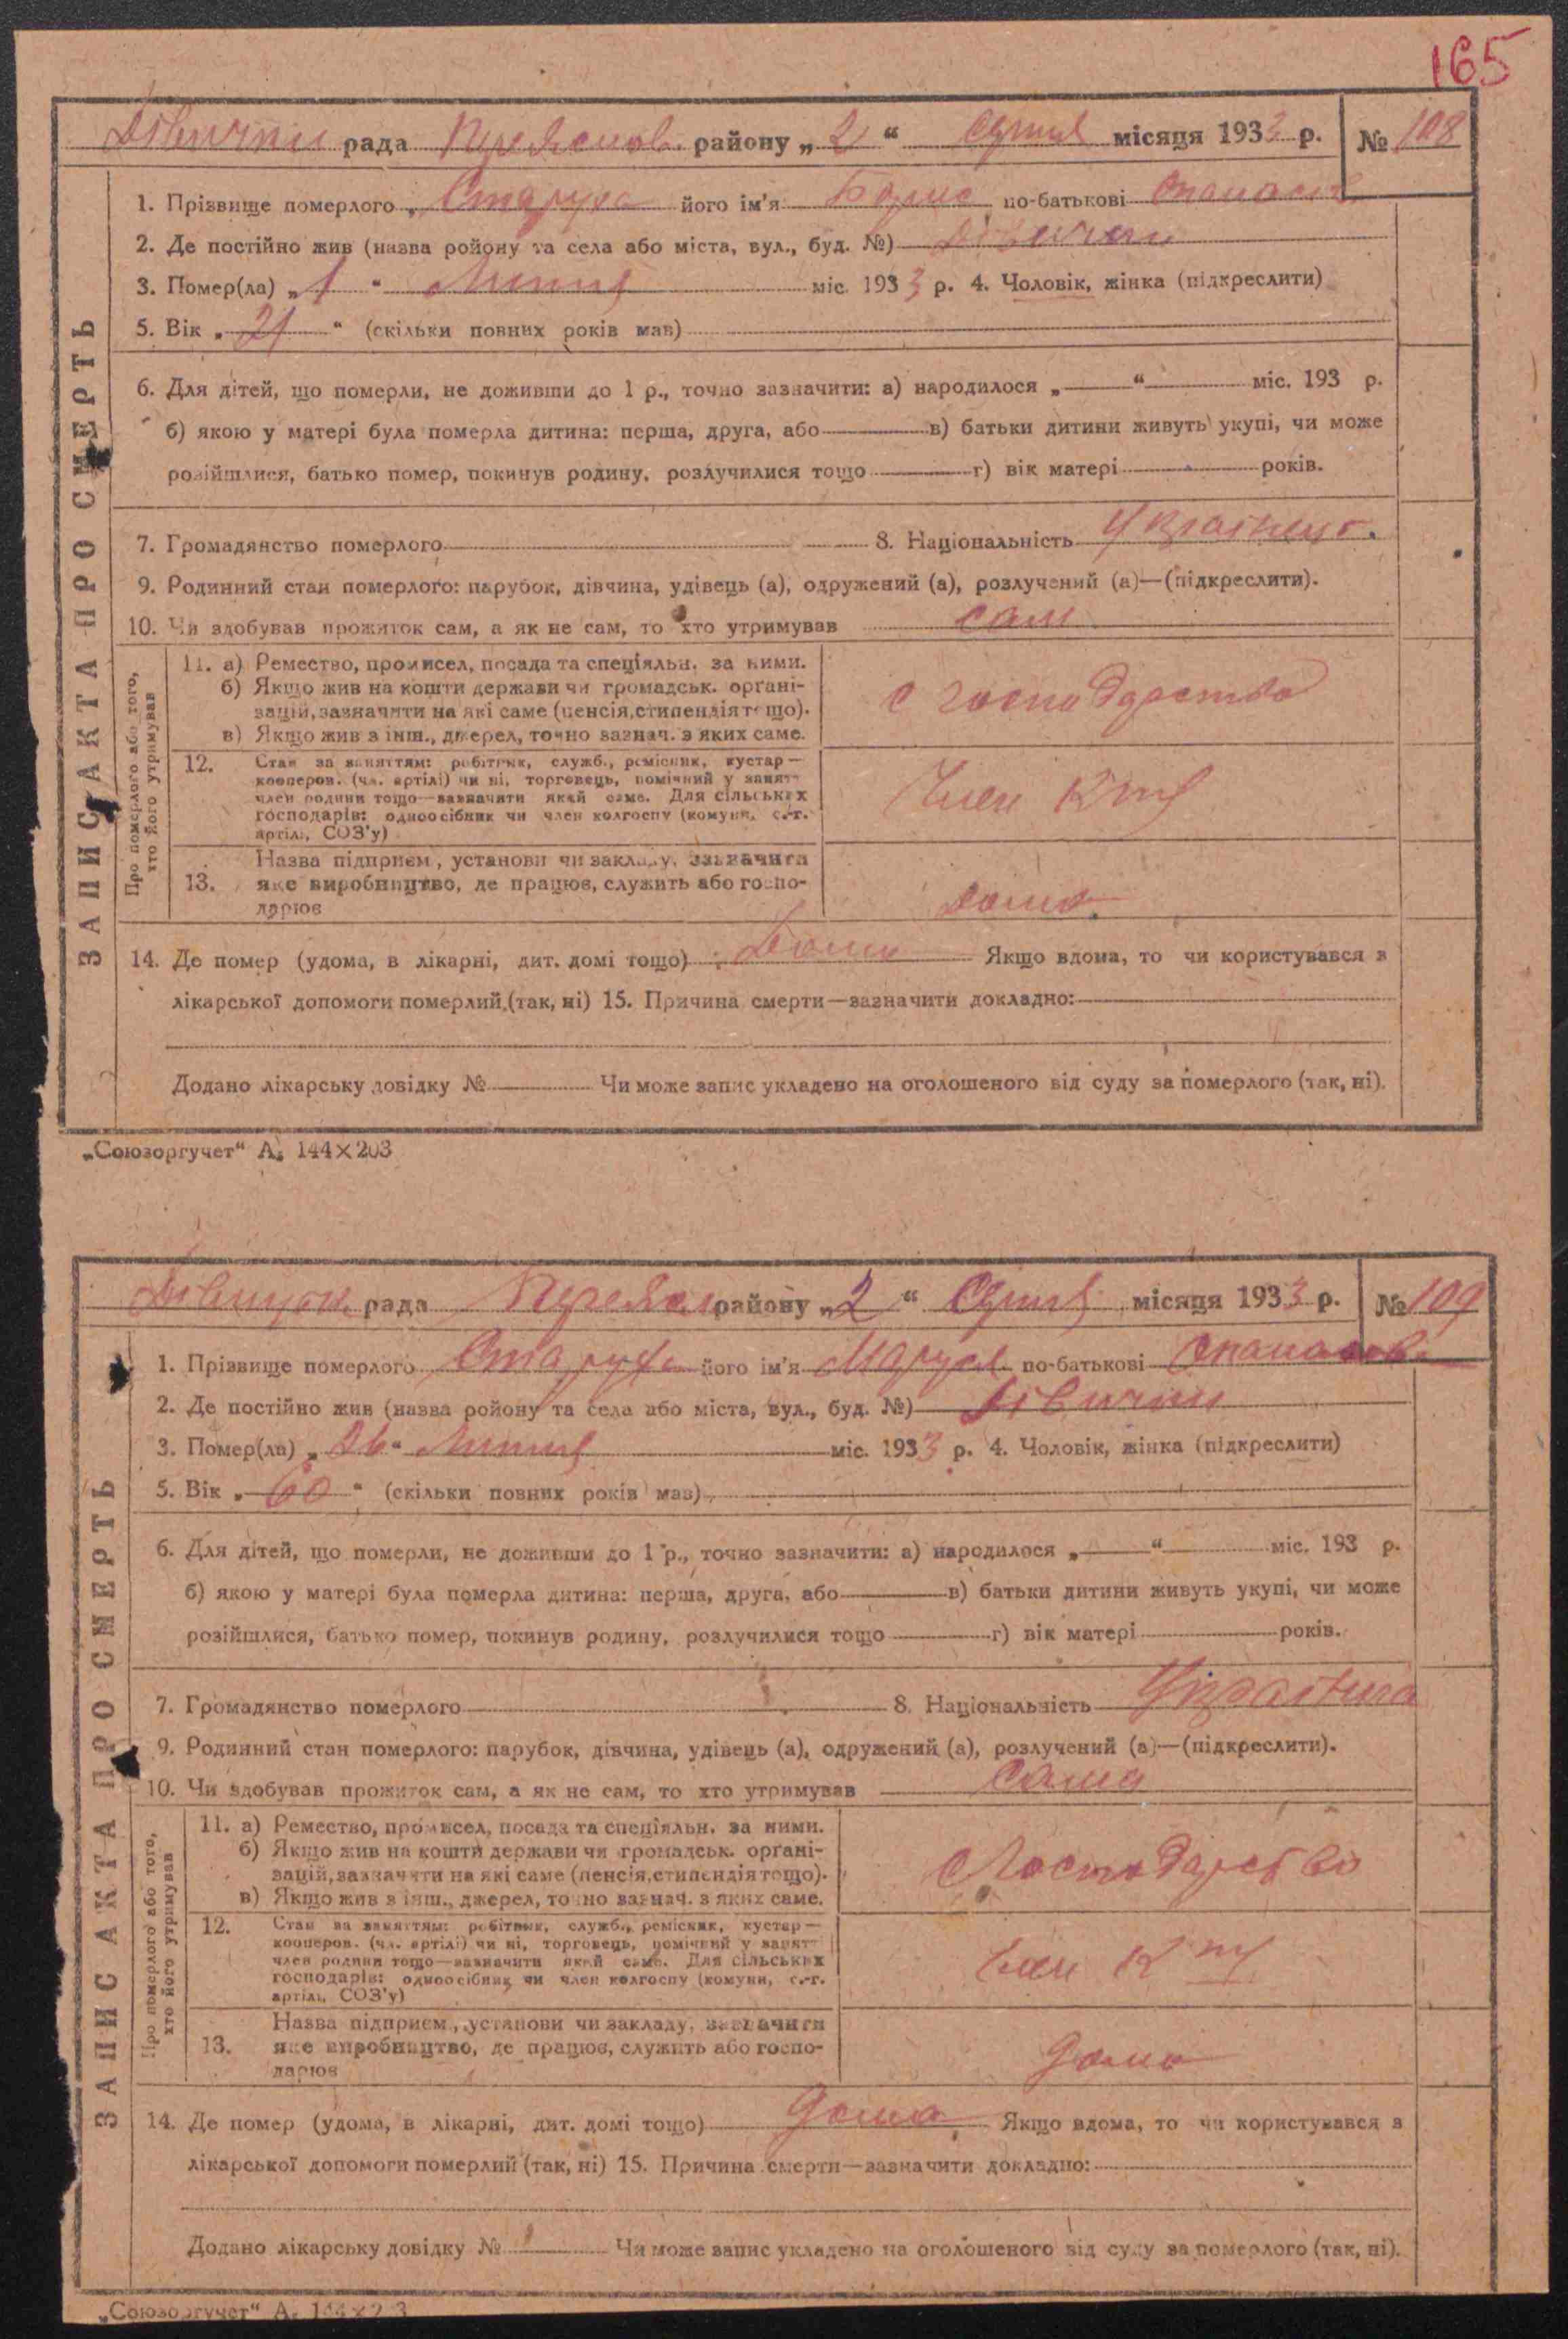 165
Дівички рада Переяслов. району „ 2 “ Серпня місяця 1933 р. № 108
1. Прізвище померлого Старуха його ім'я Борис по-батькові Опанасов
2. Де постійно жив (назва ройону та села або міста, вул., буд. №) Дівички
3. Помер(ла) „ 1 “ Липня міс. 1933 р. 4. Чоловік, жінка (підкреслити)
5. Вік „ 21 “ (скільки повних років мав)
6. Для дітей, що померли, не доживши до 1 р., точно зазначити: а) народилося „ “ міс. 193 р.
б) якою у матері була померла дитина: перша, друга, або в) батьки дитини живуть укупі, чи може
розійшлися, батько помер, покинув родину, розлучилися тощо г) вік матері років.
7. Громадянство померлого 8. Національність
9. Родинний стан померлого: парубок, дівчина, удівець (а), одружений (а), розлучений (а)—(підкреслити).
10. Чи здобував прожиток сам, а як не сам, то хто утримував сам
ЗАПИС АКТА ПРО СМЕРТЬ
Про померлого або того, хто його утримував
11. а) Ремество, промисел, посада та спеціяльн. за ними.
б) Якщо жив на кошти держави чи громадськ. органі-
зацій, зазначити на які саме (пенсія, стипендія тощо).
в) Якщо жив з інш., джерел, точно зазнач. з яких саме.
с господарства
12. Стан за заняттям: робітник, служб., ремісник, кустар—
кооперов. (чл. артілі) чи ні, торговець, помічний у занятт
член родини тощо—зазначити який саме. Для сільських
господарів: одноосібник чи член колгоспу (комуни, с.-г.
артілі, СОЗ'у)
Член
13. Назва підприєм., установи чи закладу, зазначити
яке виробництво, де працює, служить або госпо-
дарює
дома
14. Де помер (удома, в лікарні, дит. домі тощо) Дома Якщо вдома, то чи користувався з
лікарської допомоги померлий (так, ні) 15. Причина смерти—зазначити докладно:
Додано лікарську довідку № Чи може запис укладено на оголошеного від суду за померлого (так, ні).
„Союзоргучет“ А₅ 144×203
рада району „ 2 “ Серпня місяця 1933 р. № 109
1. Прізвище померлого Старуха його ім'я Маруся по-батькові Опанасов.
2. Де постійно жив (назва ройону та села або міста, вул., буд. №) Дівички
3. Помер(ла) „ 26 “ Липня міс. 1933 р. 4. Чоловік, жінка (підкреслити)
5. Вік „ 60 “ (скільки повних років мав)
6. Для дітей, що померли, не доживши до 1 р., точно зазначити: а) народилося „ “ міс. 193 р.
б) якою у матері була померла дитина: перша, друга, або в) батьки дитини живуть укупі, чи може
розійшлися, батько помер, покинув родину, розлучилися тощо г) вік матері років.
7. Громадянство померлого 8. Національність
9. Родинний стан померлого: парубок, дівчина, удівець (а), одружений (а), розлучений (а)—(підкреслити).
10. Чи здобував прожиток сам, а як не сам, то хто утримував сама
ЗАПИС АКТА ПРО СМЕРТЬ
Про померлого або того, хто його утримував
11. а) Ремество, промисел, посада та спеціяльн. за ними.
б) Якщо жив на кошти держави чи громадськ. органі-
зацій, зазначити на які саме (пенсія, стипендія тощо).
в) Якщо жив з інш., джерел, точно зазнач. з яких саме.
Господарство
12. Стан за заняттям: робітник, служб., ремісник, кустар—
кооперов. (чл. артілі) чи ні, торговець, помічний у занятт
член родини тощо—зазначити який саме. Для сільських
господарів: одноосібник чи член колгоспу (комуни, с.-г.
артілі, СОЗ'у)
член
13. Назва підприєм., установи чи закладу, зазначити
яке виробництво, де працює, служить або госпо-
дарює
дома
14. Де помер (удома, в лікарні, дит. домі тощо) дома Якщо вдома, то чи користувався з
лікарської допомоги померлий (так, ні) 15. Причина смерти—зазначити докладно:
Додано лікарську довідку № Чи може запис укладено на оголошеного від суду за померлого (так, ні).
„Союзоргучет“ А₅ 144×203